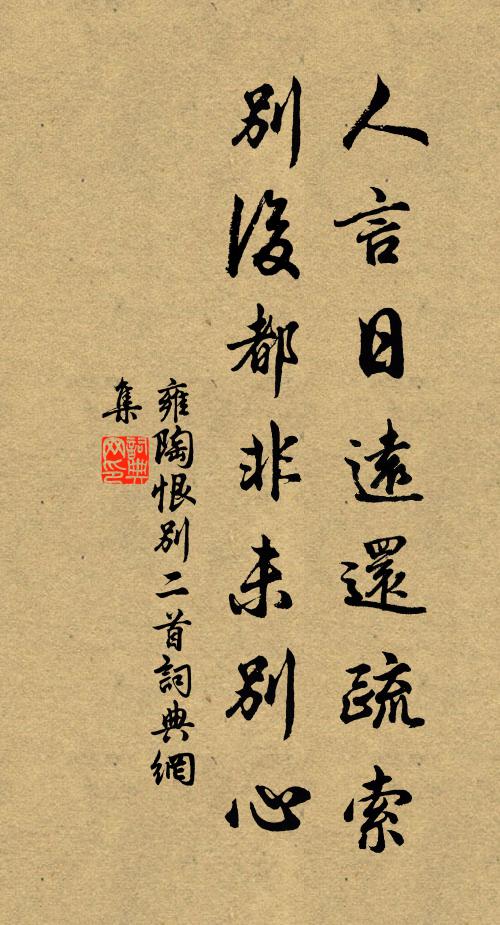 人言日遠還疏索
別後都非未別心
雍陶恨別二首詞典網
集
詞典
网印